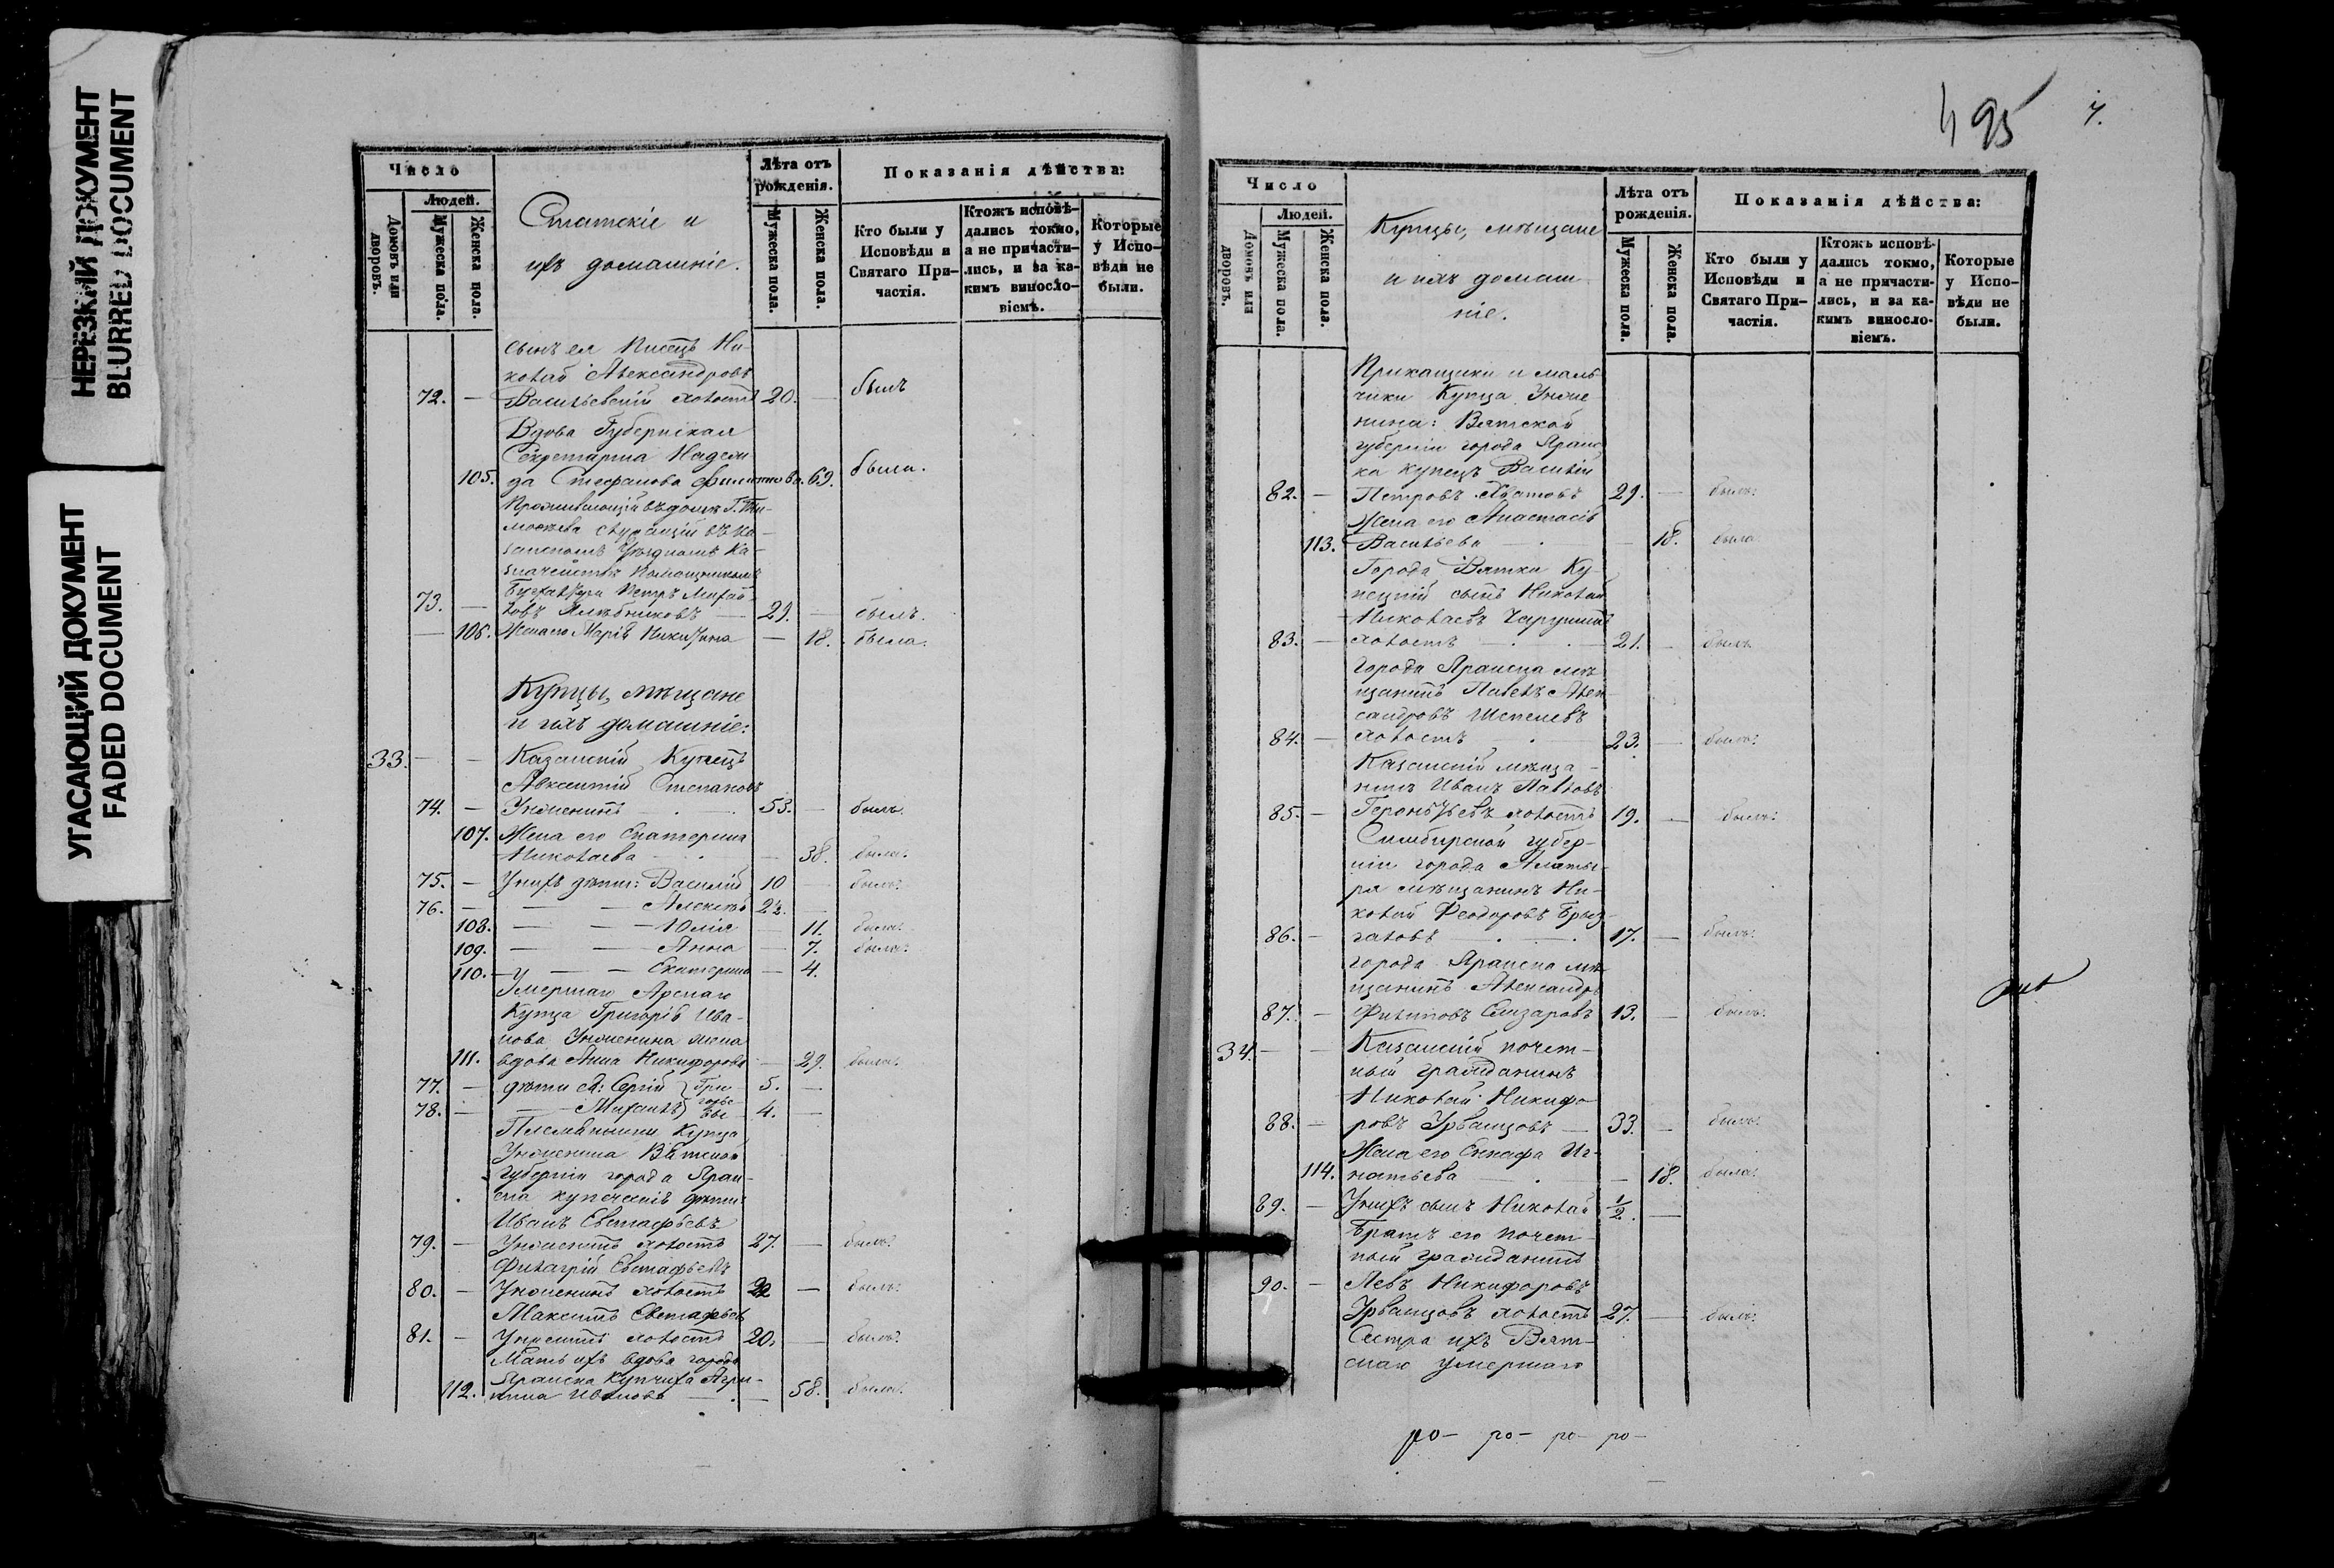 НЕРЕЗКИЙ ДОКУМЕНТ
BLURRED DOCUMENT
УГАСАЮЩИЙ ДОКУМЕНТ
FADED DOCUMENT
Число
Людей.
Домовъ или дворовъ.
Мужеска пола.
Женска пола.
Статскіе и
ихъ домашніе.
Лѣта отъ рожденія.
Мужеска пола.
Женска пола.
Показанія дѣйства:
Кто были у Исповѣди и Святаго При-частія.
Ктожъ исповѣ-дались токмо, а не причасти-лись, и за ка-кимъ виносло-віемъ.
Которые у Испо-вѣди не были.
сынъ ея Писецъ Ни-
колай Александровъ
72. — Васильевскій холостъ 20. — былъ
Вдова Губернская
Секретарша Надеж-
105. да Стефанова 69. была.
Проживающій въ домѣ Г. Ти-
моѳеева служащій въ Ка-
занскомъ Уѣздномъ Ка-
значействѣ Помощникомъ
Бухгалтера Петръ Михай-
73. — ловъ Хлѣбниковъ — 29. — былъ.
— 106. Жена его Марія Никитина — 18. была.
Купцы, мѣщане
и ихъ домашніе:
33. — — Казанскій Купецъ
Авксентій Степановъ
74. — Унженинъ 53. — былъ.
107. Жена его Екатерина
Николаева — 38. была.
75. — У нихъ дѣти: Василій 10 — былъ.
76. — — — Алексѣй 2½. —
108. — — Юлія — 11. была.
109. — — Анна — 7. была.
110. — — Екатерина — 4.
Умершаго Арскаго
Купца Григорія Ива-
нова Унженина жена
111. вдова Анна Никифорова — 29. была.
77. — дѣти ея: Сергій } Гри- 5. —
78. — — Михаилъ } горье-вы 4. —
Племянники Купца
Унженина Вятской
Губерніи города Яран-
ска купеческіе дѣти
Иванъ Евстафьевъ
79. — Унженинъ холостъ 27. — былъ.
Филагрій Евстафьевъ
80. — Унженинъ холостъ 22 — былъ.
Максимъ Евстафьевъ
81. — Унженинъ холостъ 20. — былъ.
Мать ихъ вдова города
Яранска Купчиха Агри-
112. пина Иванова — 58. была.
495
7.
Число
Людей.
Домовъ или дворовъ.
Мужеска пола.
Женска пола.
Купцы, мѣщане
и ихъ домаш
ніе.
Лѣта отъ рожденія.
Мужеска пола.
Женска пола.
Показанія дѣйства:
Кто были у Исповѣди и Святаго При-частія.
Ктожъ исповѣ-дались токмо, а не причасти-лись, и за ка-кимъ виносло-віемъ.
Которые у Испо-вѣди не были.
Прикащики и маль-
чики Купца Унже
нина: Вятской
губерніи города Яранс
ка купецъ Василій
82. — Петровъ Хватовъ 29. — былъ.
Жена его Анастасія
113. Васильева — — 18. была
Города Вятки Ку-
пецкій сынъ Николай
Николаевъ Чарушинъ
83. — холостъ — 21. — былъ
города Яранска мѣ
щанинъ Павелъ Алек-
сандровъ Шепелевъ
84. — холостъ — 23. — былъ.
Казанскій мѣща-
нинъ Иванъ Павловъ
85. — холостъ 19. — былъ.
Симбирской губер-
ніи города Алаты-
ря мѣщанинъ Ни-
колай Феодоровъ Брыз-
86. — галовъ — 17. — былъ.
города Яранска мѣ
щанинъ Александръ
87. — Филиповъ Елизаровъ 13. — былъ.
34. — — Казанскій почет-
ный гражданинъ
Николай Никифо-
88. — ровъ Урванцовъ — 33. — былъ.
Жена его Иг-
114. натьева — — 18. была.
89. — У нихъ сынъ Николай ½. —
Братъ его почет-
ный гражданинъ
90. — Левъ Никифоровъ
Урванцовъ холостъ 27. — былъ.
Сестра ихъ Вят-
скаго умершаго
ро- ро- ро- ро-